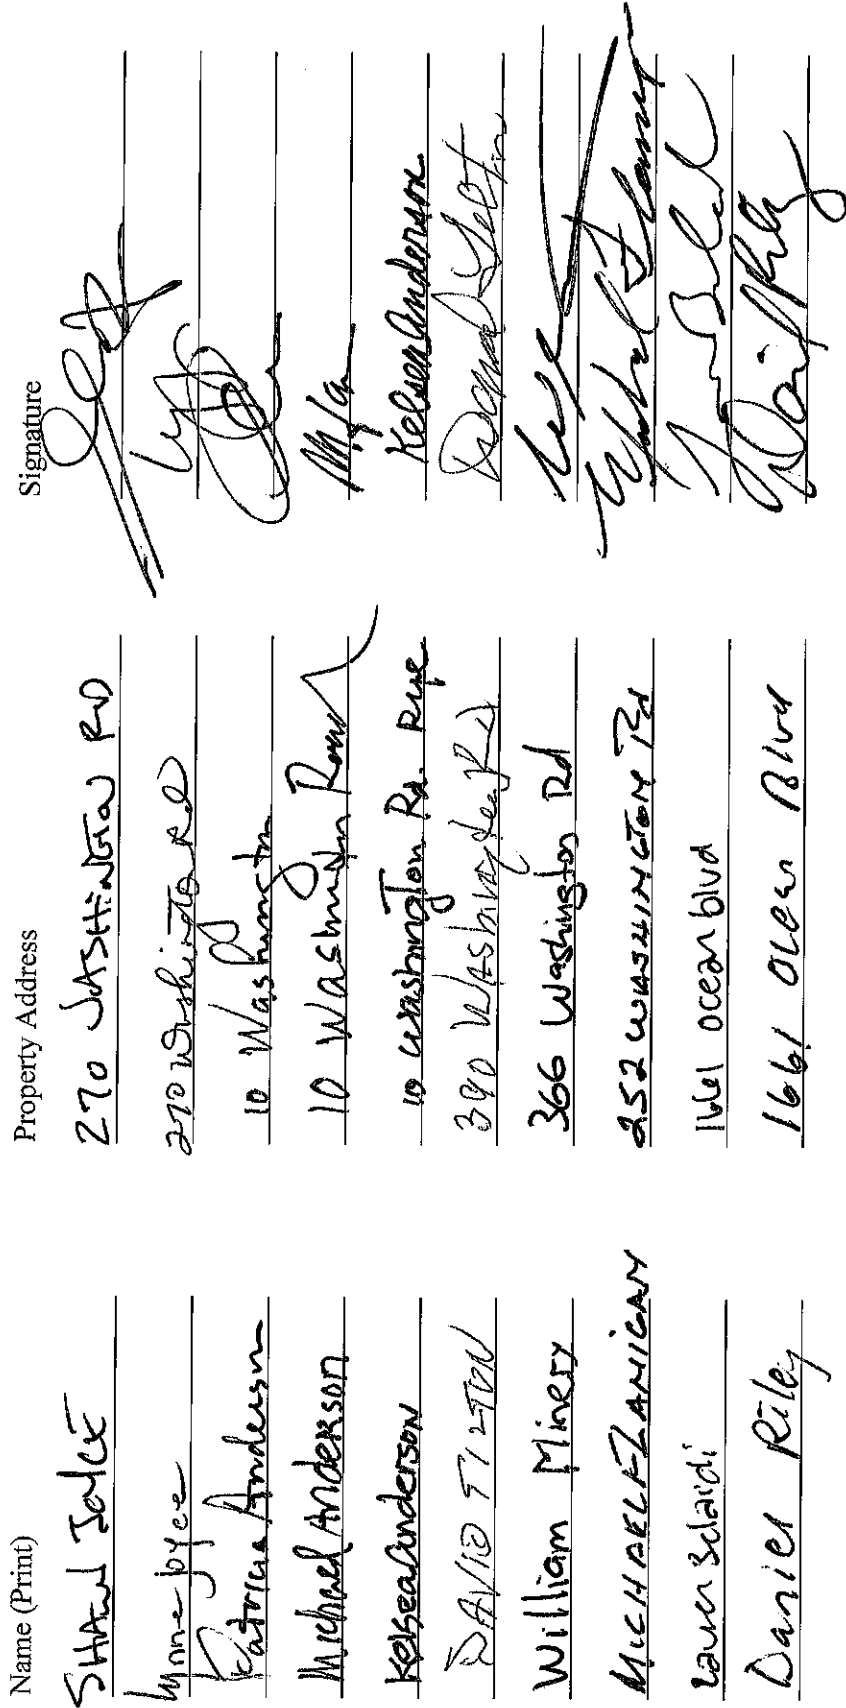 Name (Print) Property Address Signature
SHAWN JOYCE 270 WASHINGTON RD
Lynne Joyce 270 Washington Rd
Patricia Anderson 10 Washington
Michael Anderson 10 Washington Road
Kelsea Anderson 10 Washington Rd. Rye Kelsea Anderson
DAVID TILTON 390 Washington Rd David Tilton
William Minery 366 Washington Rd
MICHAEL FLANIGAN 252 WASHINGTON Rd
1661 ocean blvd
Daniel Riley 1661 Ocean Blvd